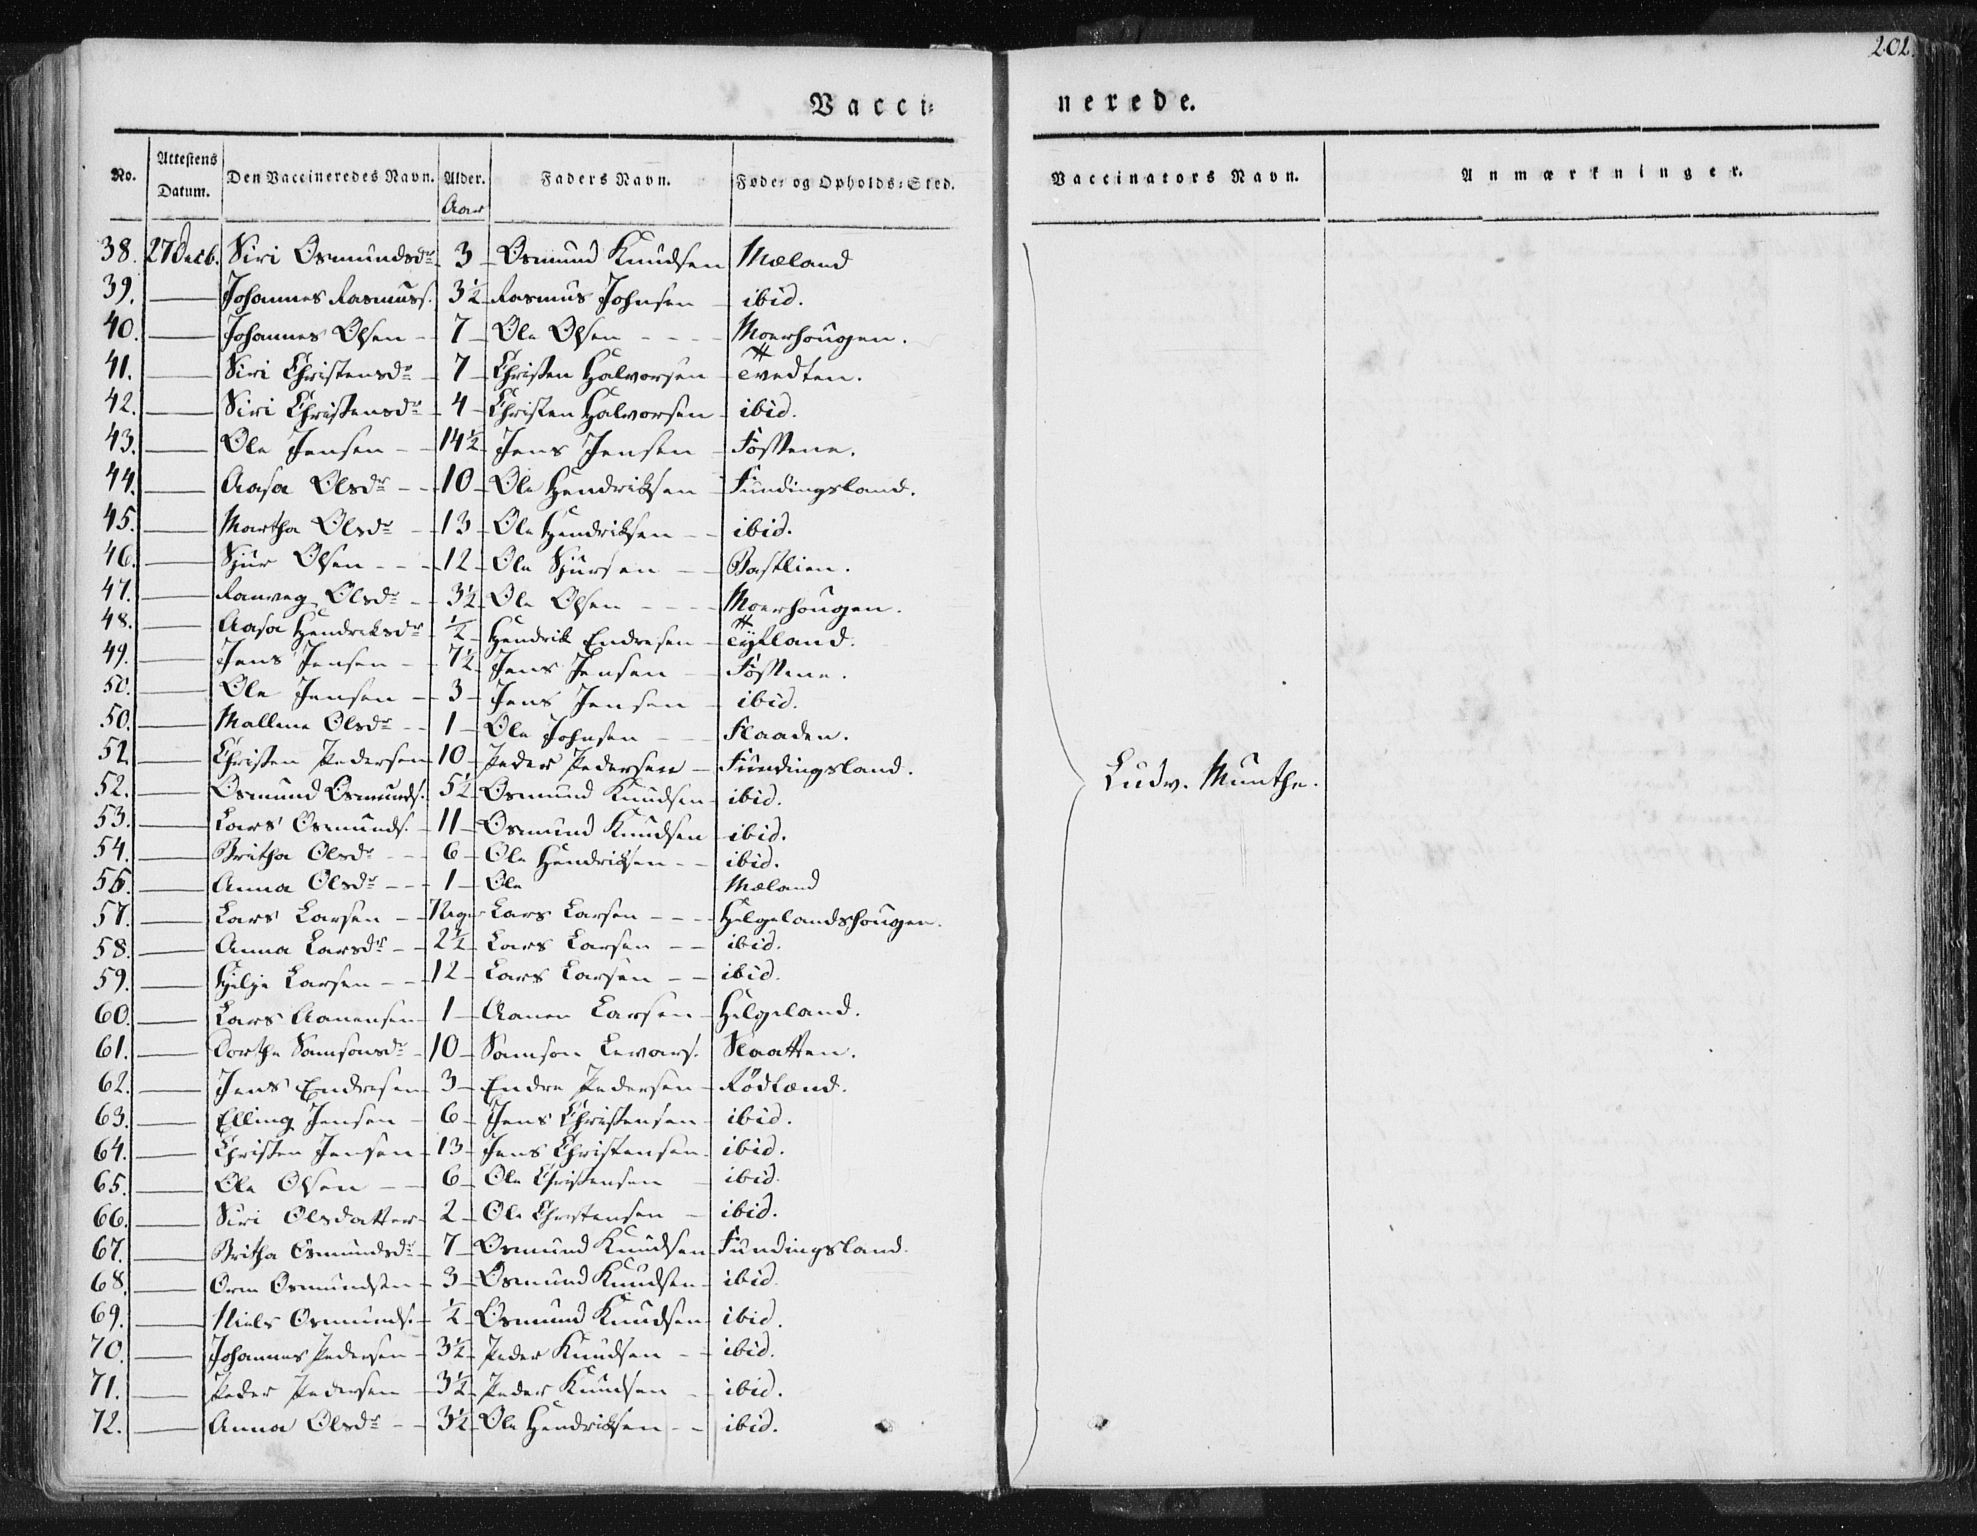 202.
Vacci= nerede.
No. Attestens Datum. Den Vaccineredes Navn. Alder. Aar Faders Navn. Føde- og Opholds-Sted. Vaccinators Navn. Anmærkninger.
38. 27 Decb. Siri Osmundsdr 3 Osmund Knudsen Mæland
39. Johannes Rasmuss. 3½ Rasmus Johnsen ibid.
40. Johannes Olsen 7 Ole Olsen Moerhougen.
41. Siri Christensdr 7 Christen Halvorsen Tvedten.
42. Siri Christensdr 4 Christen Halvorsen ibid.
43. Ole Jensen 14½ Jens Jensen Fossene.
44. Aasa Olsdr 10 Ole Hendriksen Fundingsland.
45. Martha Olsdr 13 Ole Hendriksen ibid.
46. Sjur Olsen 12 Ole Sjursen Bastlien.
47. Ranveg Olsdr 3½ Ole Olsen Moerhougen.
48. Aasa Hendriksdr ½ Hendrik Endresen Tyfland.
49. Jens Jensen 7½ Jens Jensen Fossene.
50. Ole Jensen 3 Jens Jensen ibid.
50. Mallene Olsdr 1 Ole Johnsen Flaaden.
51. Christen Pedersen 10 Peder Pedersen Fundingsland.
52. Osmund Osmunds. 5½ Osmund Knudsen ibid.
53. Lars Osmunds. 11 Osmund Knudsen ibid.
54. Britha Olsdr 6 Ole Hendriksen ibid.
56. Anna Olsdr 1 Ole Mæland
57. Lars Larsen 7 Uger Lars Larsen Helgelandshougen.
58. Anna Larsdr 2½ Lars Larsen ibid.
59. Helje Larsen 12 Lars Larsen ibid.
60. Lars Aanensen 1 Aanen Larsen Helgeland.
61. Dorthe Samsonsdr 10 Samson Lewars. Slaatten.
62. Jens Endresen 3 Endre Pedersen Rødland.
63. Elling Jensen 6 Jens Christensen ibid.
64. Christen Jensen 13 Jens Christensen ibid.
65. Ole Olsen 6 Ole Christensen ibid.
66. Siri Olsdatter 2 Ole Christensen ibid.
67. Britha Osmundsdr 7 Osmund Knudsen Fundingsland.
68. Orm Osmundsen 3 Osmund Knudsen ibid.
69. Niels Osmunds. ½ Osmund Knudsen ibid.
70. Johannes Pedersen 3½ Peder Knudsen ibid.
71. Peder Pedersen 3½ Peder Knudsen ibid.
72. Anna Olsdr 3½ Ole Hendriksen ibid.
Ludv. Munthe.